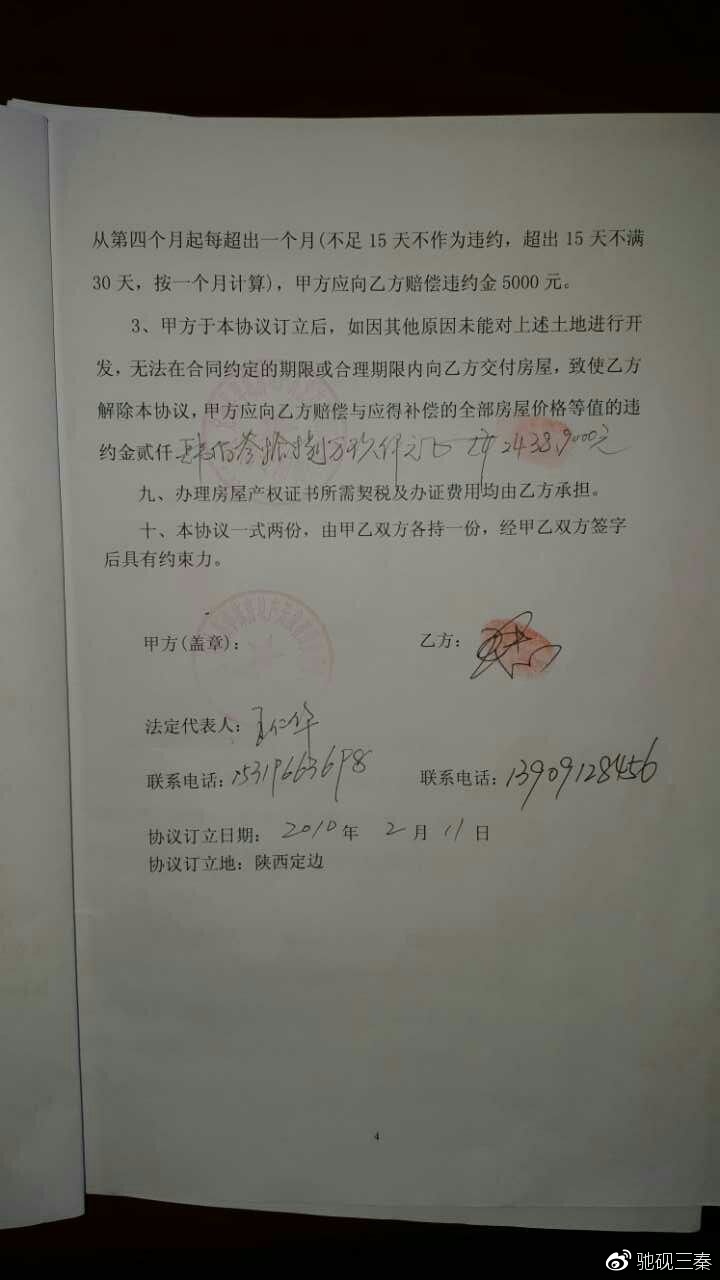 从第四个月起每超出一个月(不足 15 天不作为违约，超出 15 天不满
30 天，按一个月计算)，甲方应向乙方赔偿违约金 5000 元。
3、甲方于本协议订立后，如因其他原因未能对上述土地进行开
发，无法在合同约定的期限或合理期限内向乙方交付房屋，致使乙方
解除本协议，甲方应向乙方赔偿与应得补偿的全部房屋价格等值的违
约金贰仟肆佰叁拾捌万玖仟元 2438.9000元
九、办理房屋产权证书所需契税及办证费用均由乙方承担。
十、本协议一式两份，由甲乙双方各持一份，经甲乙双方签字
后具有约束力。
甲方(盖章)： 乙方：
法定代表人：王仁华
联系电话：15319663698 联系电话：13909128456
协议订立日期： 2010 年 2 月 11 日
协议订立地：陕西定边
4
驰砚三秦